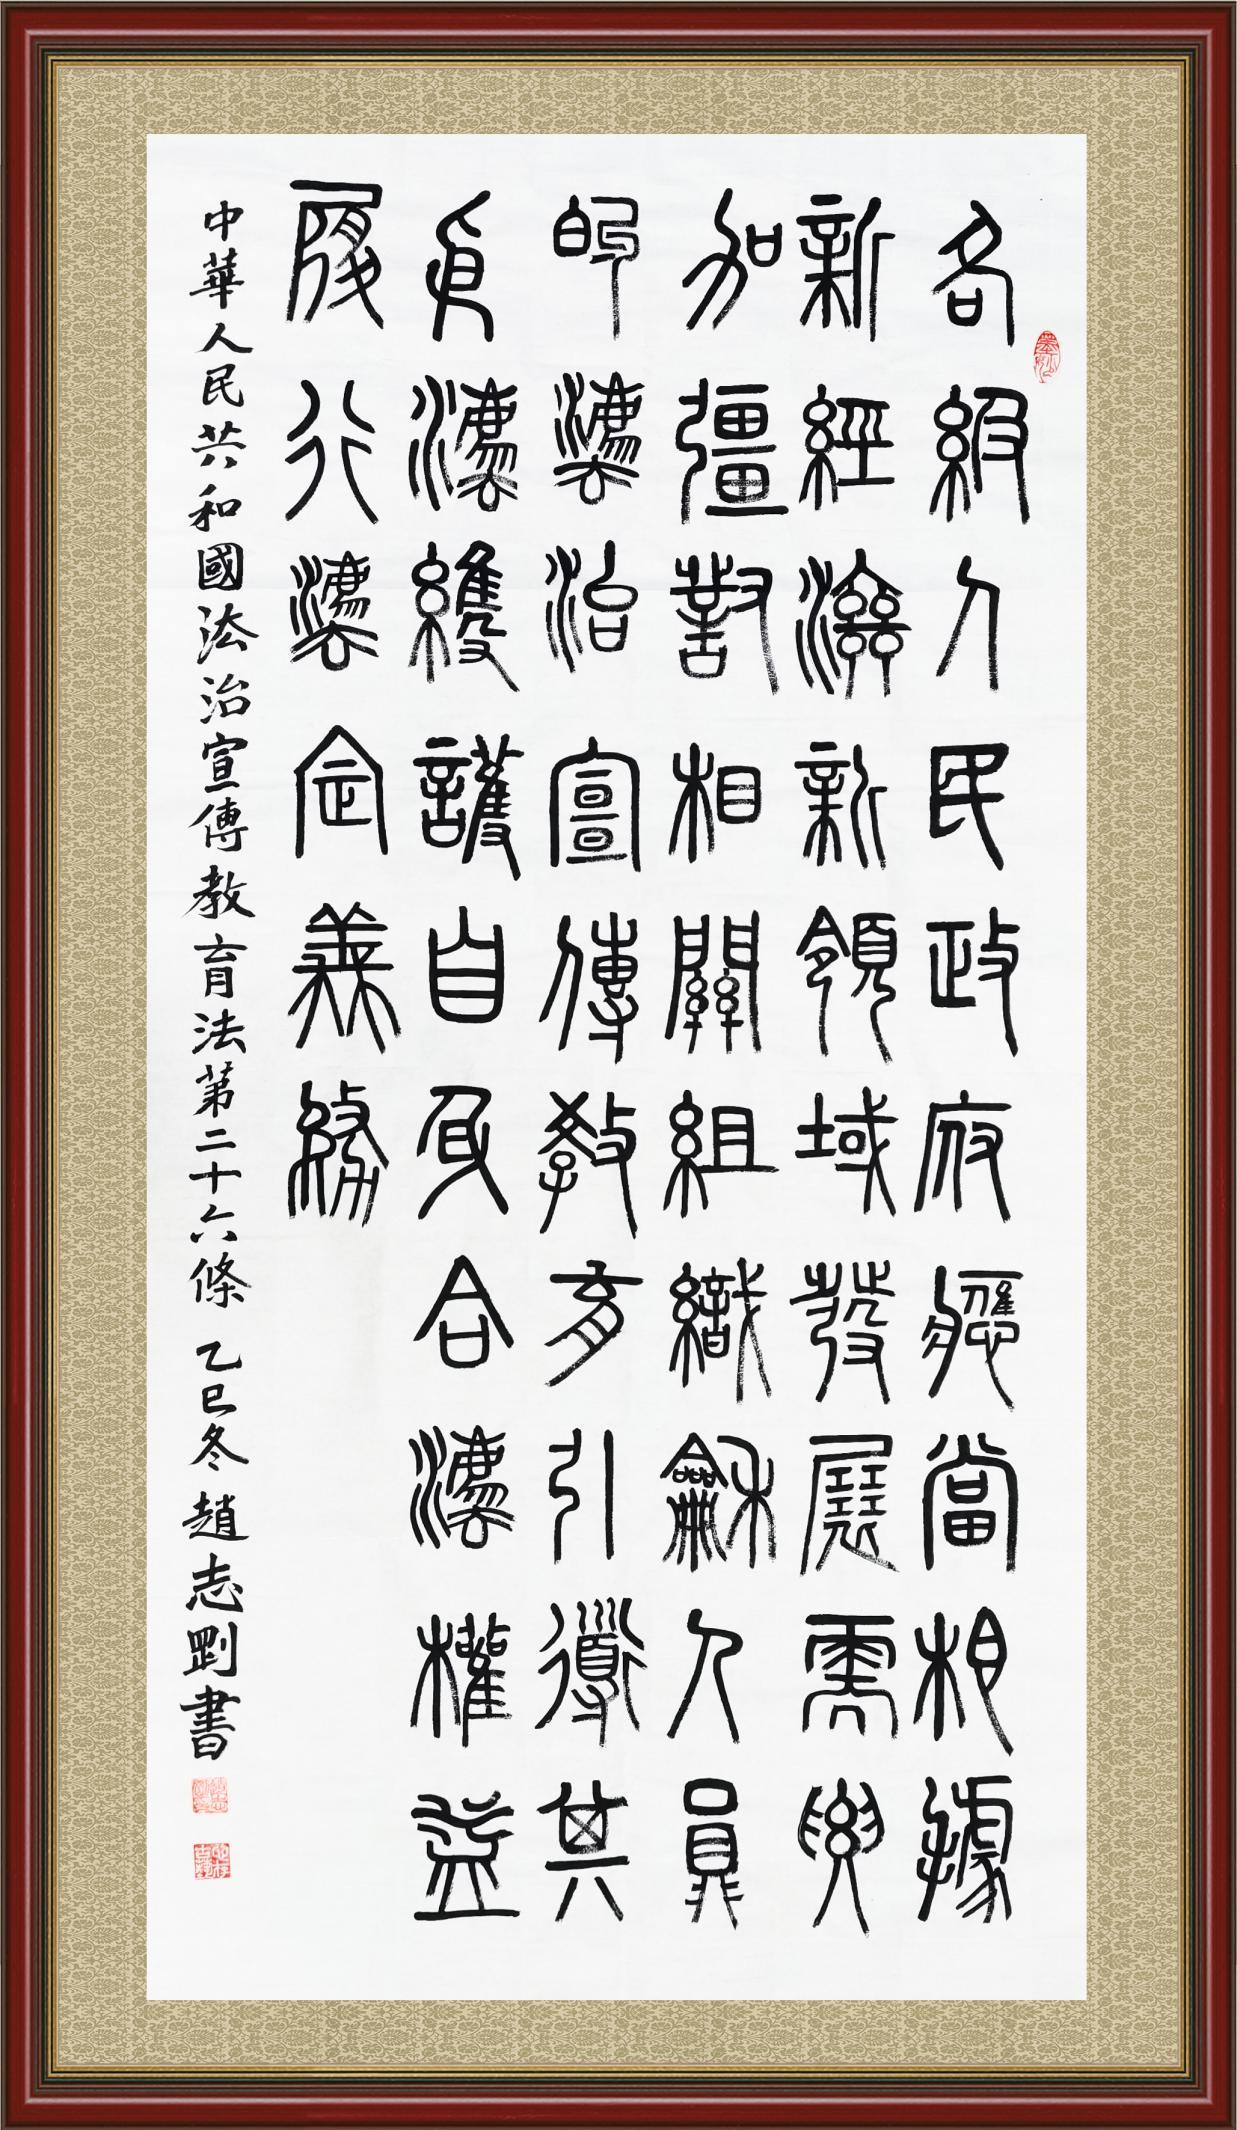 各級人民政府應當根據
新經濟新領域發展需要
加彊對相關組織龢人員
的灋治宣傳教育引導其
依灋維護自身合灋權益
履行灋定義務
中華人民共和國法治宣傳教育法第二十六條 乙巳冬 趙志剛書